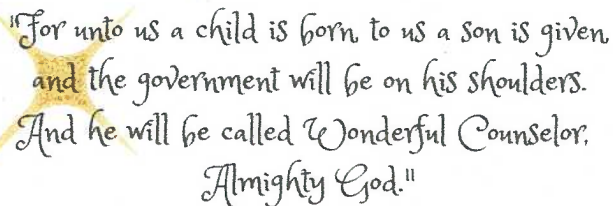 "For unto us a child is born, to us a son is given
and the government will be on his shoulders.
And he will be called Wonderful Counselor,
Almighty God."